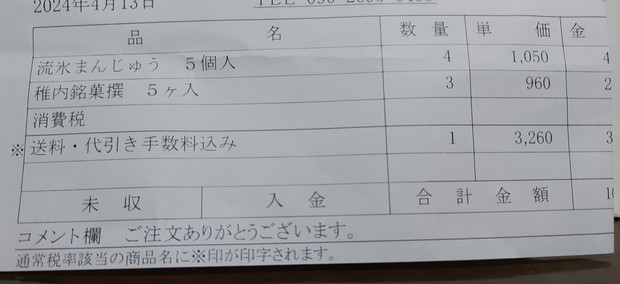 2024年4月13日
品 名 数 量 単 価 金
流氷まんじゅう 5個入 4 1,050 4
稚内銘菓撰 5ヶ入 3 960 2
消費税
※送料・代引き手数料込み 1 3,260 3
未 収 入 金 合 計 金 額 10
コメント欄 ご注文ありがとうございます。
通常税率該当の商品名に※印が印字されます。